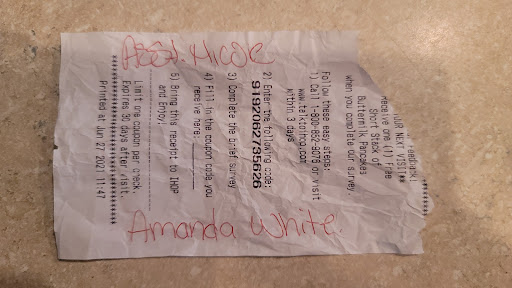 Feedback!
YOUR NEXT VISIT!**
Receive one (1) Free
Short Stack of
Buttermilk Pancakes
when you complete our survey
Follow these easy steps:
1) Call 1-800-852-9078 or visit
www.talktoihop.com
within 3 days
2) Enter the following code:
9192062735626
3) Complete the brief survey
4) Fill in the coupon code you
receive here:
5) Bring this receipt to IHOP
and Enjoy!
Limit one coupon per check.
Expires 30 days after visit.
Printed at Jun 27 2021 11:47
Asst. Nicole
Amanda White.